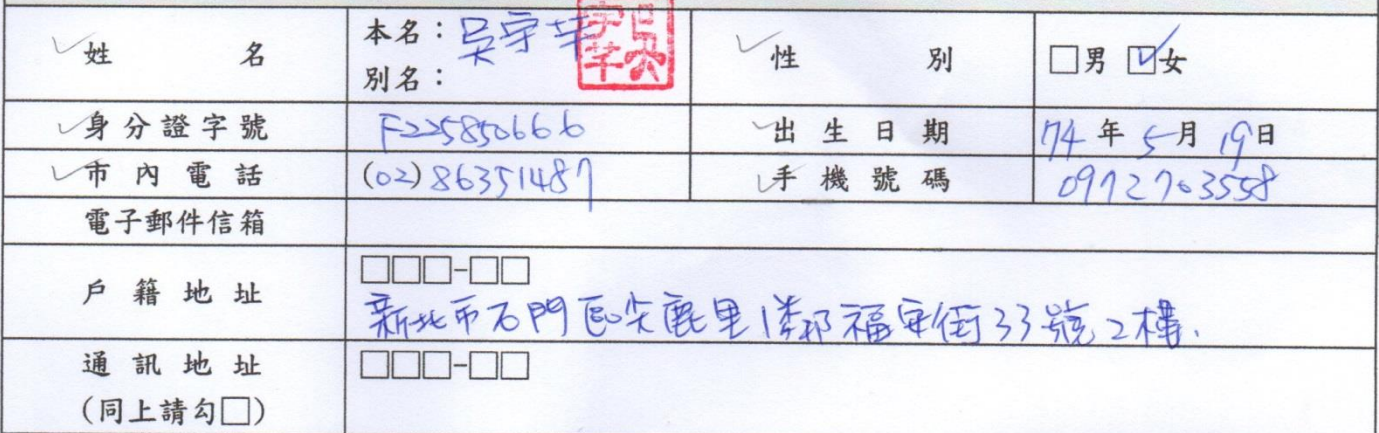 姓名 本名：吳宇芊 吳宇芊 性別 □男 ☑女
別名：
身分證字號 F225850666 出生日期 74年5月19日
市內電話 (02)86351487 手機號碼 0972703558
電子郵件信箱
戶籍地址 □□□-□□
新北市石門區尖鹿里1鄰福安街33號2樓.
通訊地址 □□□-□□
(同上請勾□)